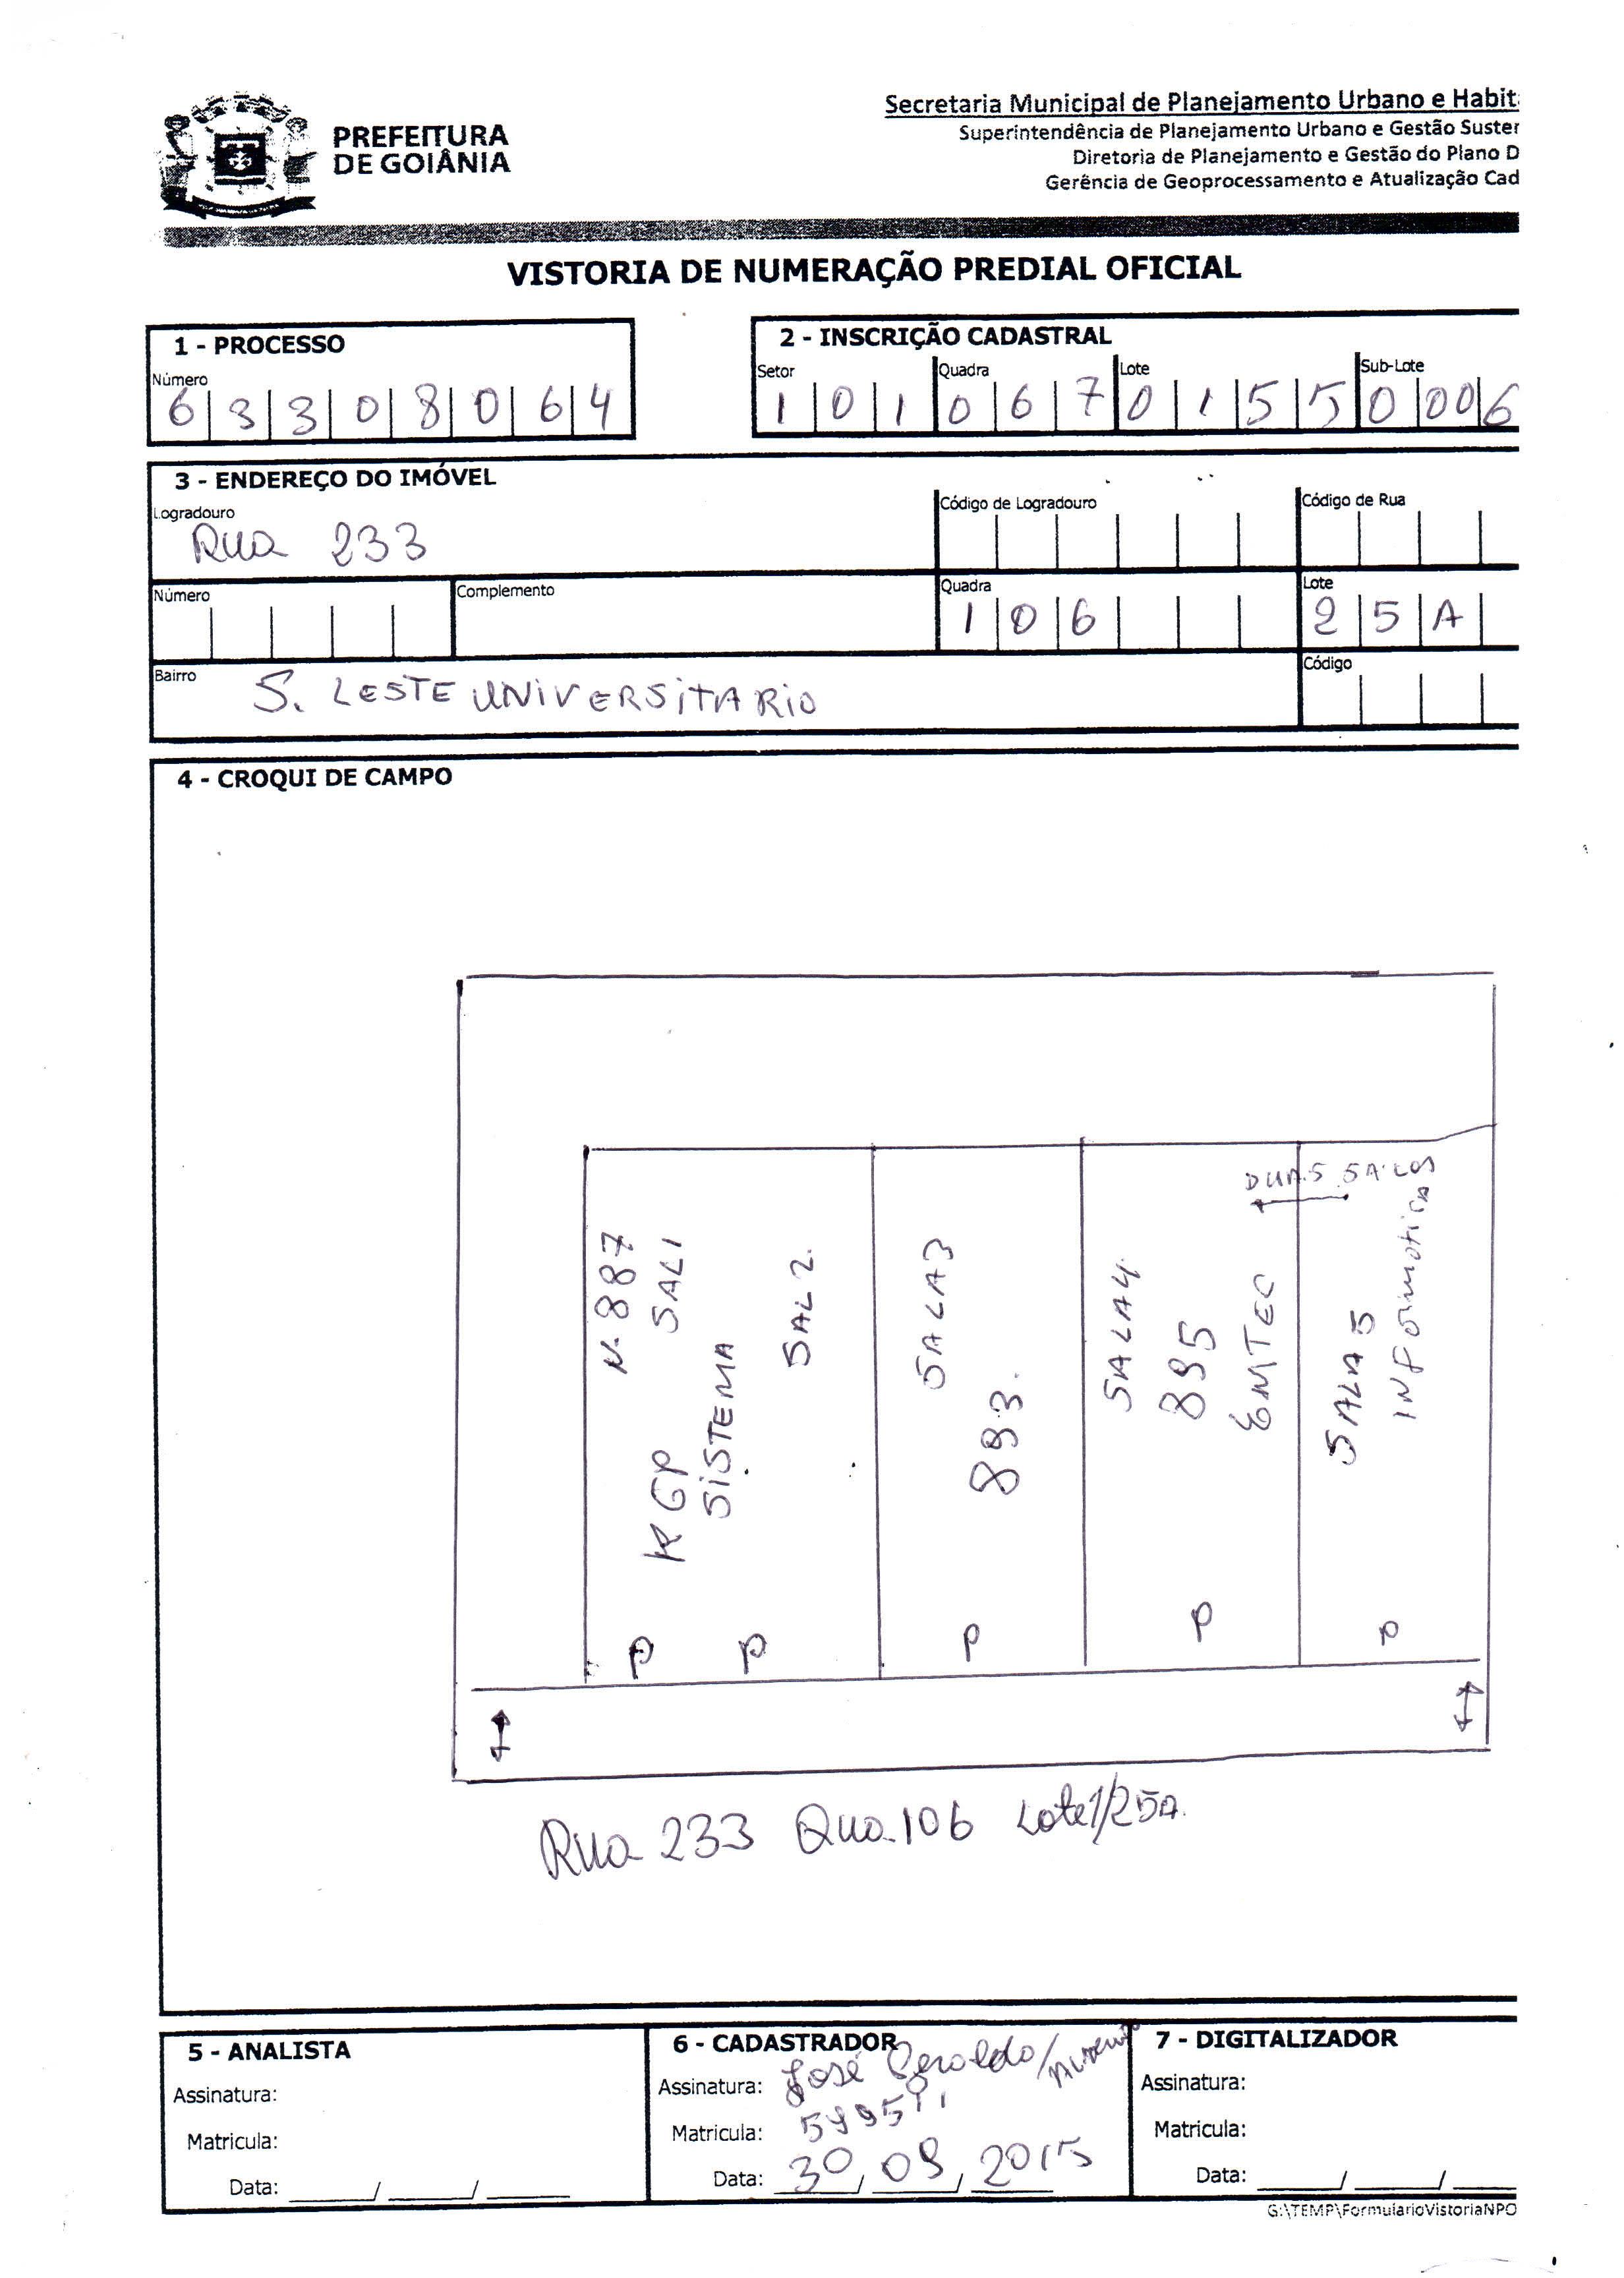 PREFEITURA
DE GOIÂNIA
Secretaria Municipal de Planejamento Urbano e Habit
Superintendência de Planejamento Urbano e Gestão Suster
Diretoria de Planejamento e Gestão do Plano D
Gerência de Geoprocessamento e Atualização Cad
VISTORIA DE NUMERAÇÃO PREDIAL OFICIAL
1 - PROCESSO
Número
6 3 3 0 8 0 6 4
2 - INSCRIÇÃO CADASTRAL
Setor Quadra Lote Sub-Lote
1 0 1 0 6 7 0 1 5 5 0 0 0 6
3 - ENDEREÇO DO IMÓVEL
Logradouro
Rua 233
Código de Logradouro
Código de Rua
Número
Complemento
Quadra
1 0 6
Lote
2 5 A
Bairro
S. LESTE UNIVERSITARIO
Código
4 - CROQUI DE CAMPO
DUAS SALAS
N. 887
SAL1
KGP
SISTEMA
SAL 2.
SALA3
893.
SALA4
895
EMTEC
SALA 5
P P P P P
Rua 233 Qua.106 Lote1/25A.
5 - ANALISTA
Assinatura:
Matricula:
Data: / /
6 - CADASTRADOR
Assinatura: José Geraldo/
Matricula:
Data: 30/09/2015
7 - DIGITALIZADOR
Assinatura:
Matricula:
Data: / /
G:\TEMP\FormularioVistoriaNPO